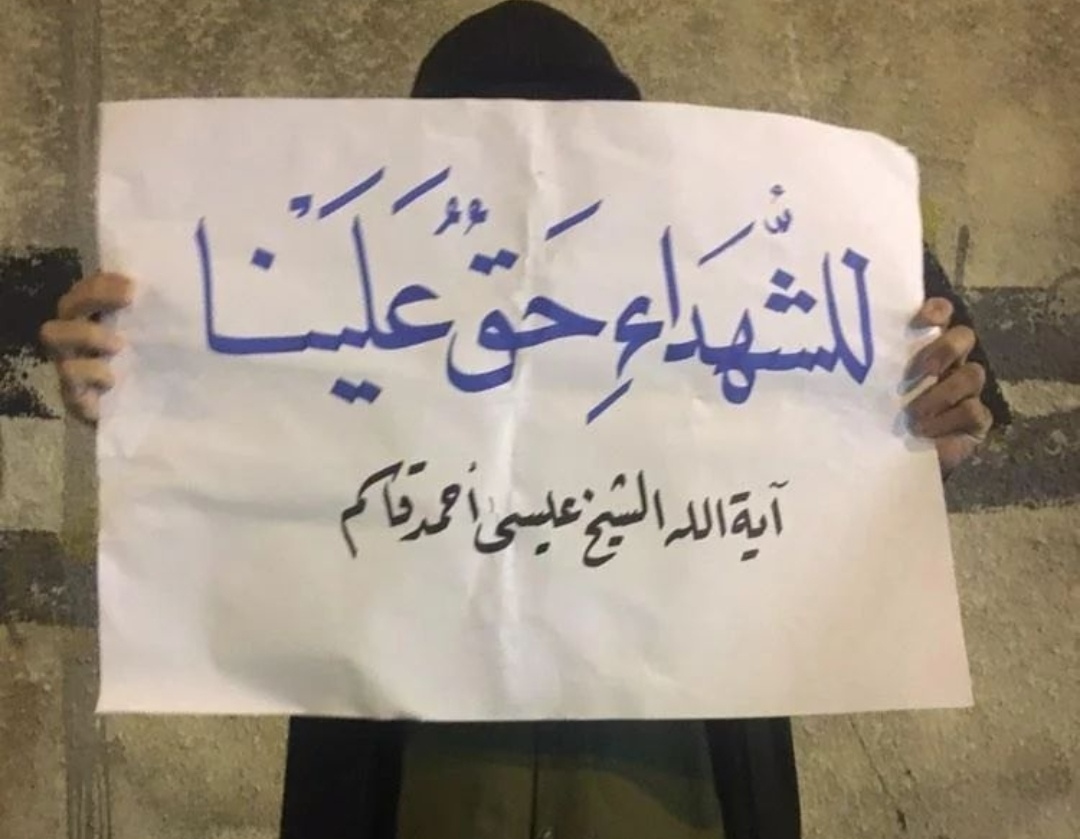 للشُّهَدَاءِ حَقٌّ عَلَيْنَا
آية الله الشيخ عيسى أحمد قاسم